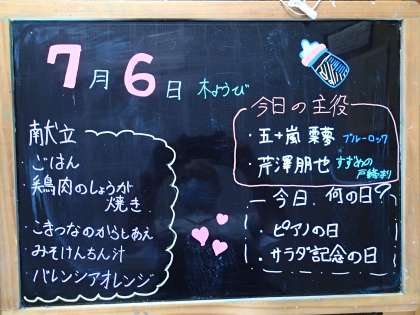 7月6日 木ようび
献立
・ごはん
・鶏肉のしょうが
焼き
・こまつなのからしあえ
・みそけんちん汁
・バレンシアオレンジ
今日の主役
・五十嵐 栗夢 ブルーロック
・芹澤朋也 すずめの
戸締まり
今日、何の日?
・ピアノの日
・サラダ記念の日